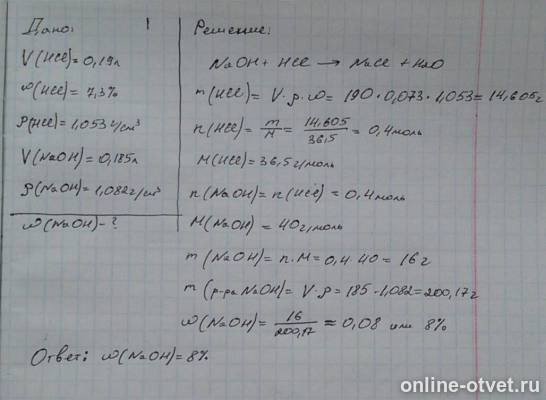 Дано:
V(HCl)=0,19л
ω(HCl)=7,3%
ρ(HCl)=1,053 г/см³
V(NaOH)=0,185л
ρ(NaOH)=1,082г/см³
ω(NaOH)-?
Решение:
NaOH + HCl → NaCl + H2O
m(HCl)= V·ρ·ω= 190·0,073·1,053= 14,605г
n(HCl)= m/M = 14,605/36,5 = 0,4моль
M(HCl)=36,5г/моль
n(NaOH)= n(HCl)= 0,4моль
M(NaOH)= 40г/моль
m(NaOH)= n·M=0,4·40=16г
m(р-ра NaOH)= V·ρ= 185·1,082=200,17г
ω(NaOH)= 16/200,17 ≈ 0,08 или 8%
Ответ: ω(NaOH)=8%
online-otvet.ru